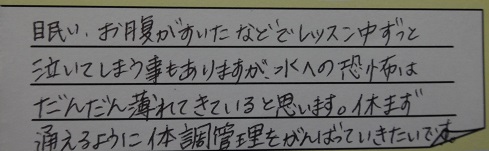 眠い、お腹がすいたなどでレッスン中ずっと
泣いてしまう事もありますが、水への恐怖は
だんだん薄れてきていると思います。休まず
通えるように体調管理をがんばっていきたいです